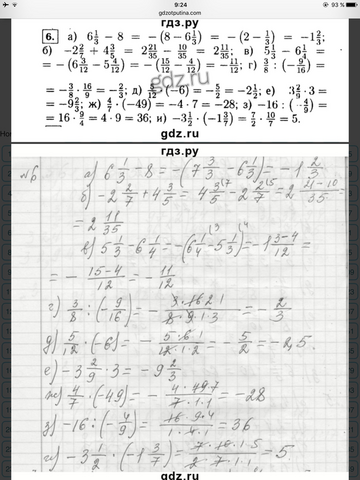 9:24
93 %
gdzotputina.com
гдз.ру
6. а) 6 1/3 − 8 = −(8 − 6 1/3) = −(2 − 1/3) = −1 2/3;
б) −2 2/7 + 4 3/5 = 2 21/35 − 10/35 = 2 11/35; в) 5 1/3 − 6 1/4 =
= −(6 3/12 − 5 4/12) = −(15/12 − 4/12) = −11/12; г) 3/8 : (−9/16) =
= −3/8 · 16/9 = −2/3; д) 5/12 · (−6) = −5/2 = −2 1/2; е) 3 2/9 · 3 =
= −9 2/3; ж) 4/7 · (−49) = −4 · 7 = −28; з) −16 : (−4/9) =
= 16 · 9/4 = 4 · 9 = 36; и) −3 1/2 · (−1 3/7) = 7/2 · 10/7 = 5.
gdz.ru
гдз.ру
№6 а) 6 1/3 − 8 = −(7 3/3 − 6 1/3) = −1 2/3
б) −2 2/7 + 4 3/5 = 4 3/5 − 2 2/7 = 2 21−10/35 =
= 2 11/35
в) 5 1/3 − 6 1/4 = −(6 1/4 − 5 1/3) = −1 3−4/12 =
= − 15−4/12 = − 11/12
г) 3/8 : (−9/16) = − 3·16 2 1/8·9·3 = − 2/3
д) 5/12 · (−6) = − 5·6·1/12·1·2 = − 5/2 = −2,5.
е) −3 2/9 · 3 = −9 2/3
ж) 4/7 · (−49) = − 4·49 7/7·1·1 = −28
з) −16 : (−4/9) = 16·9·4/1·4·1 = 36
и) −3 1/2 · (−1 3/7) = 7·10·1·5/2·7·1·1 = 5
gdz.ru
гдз.ру